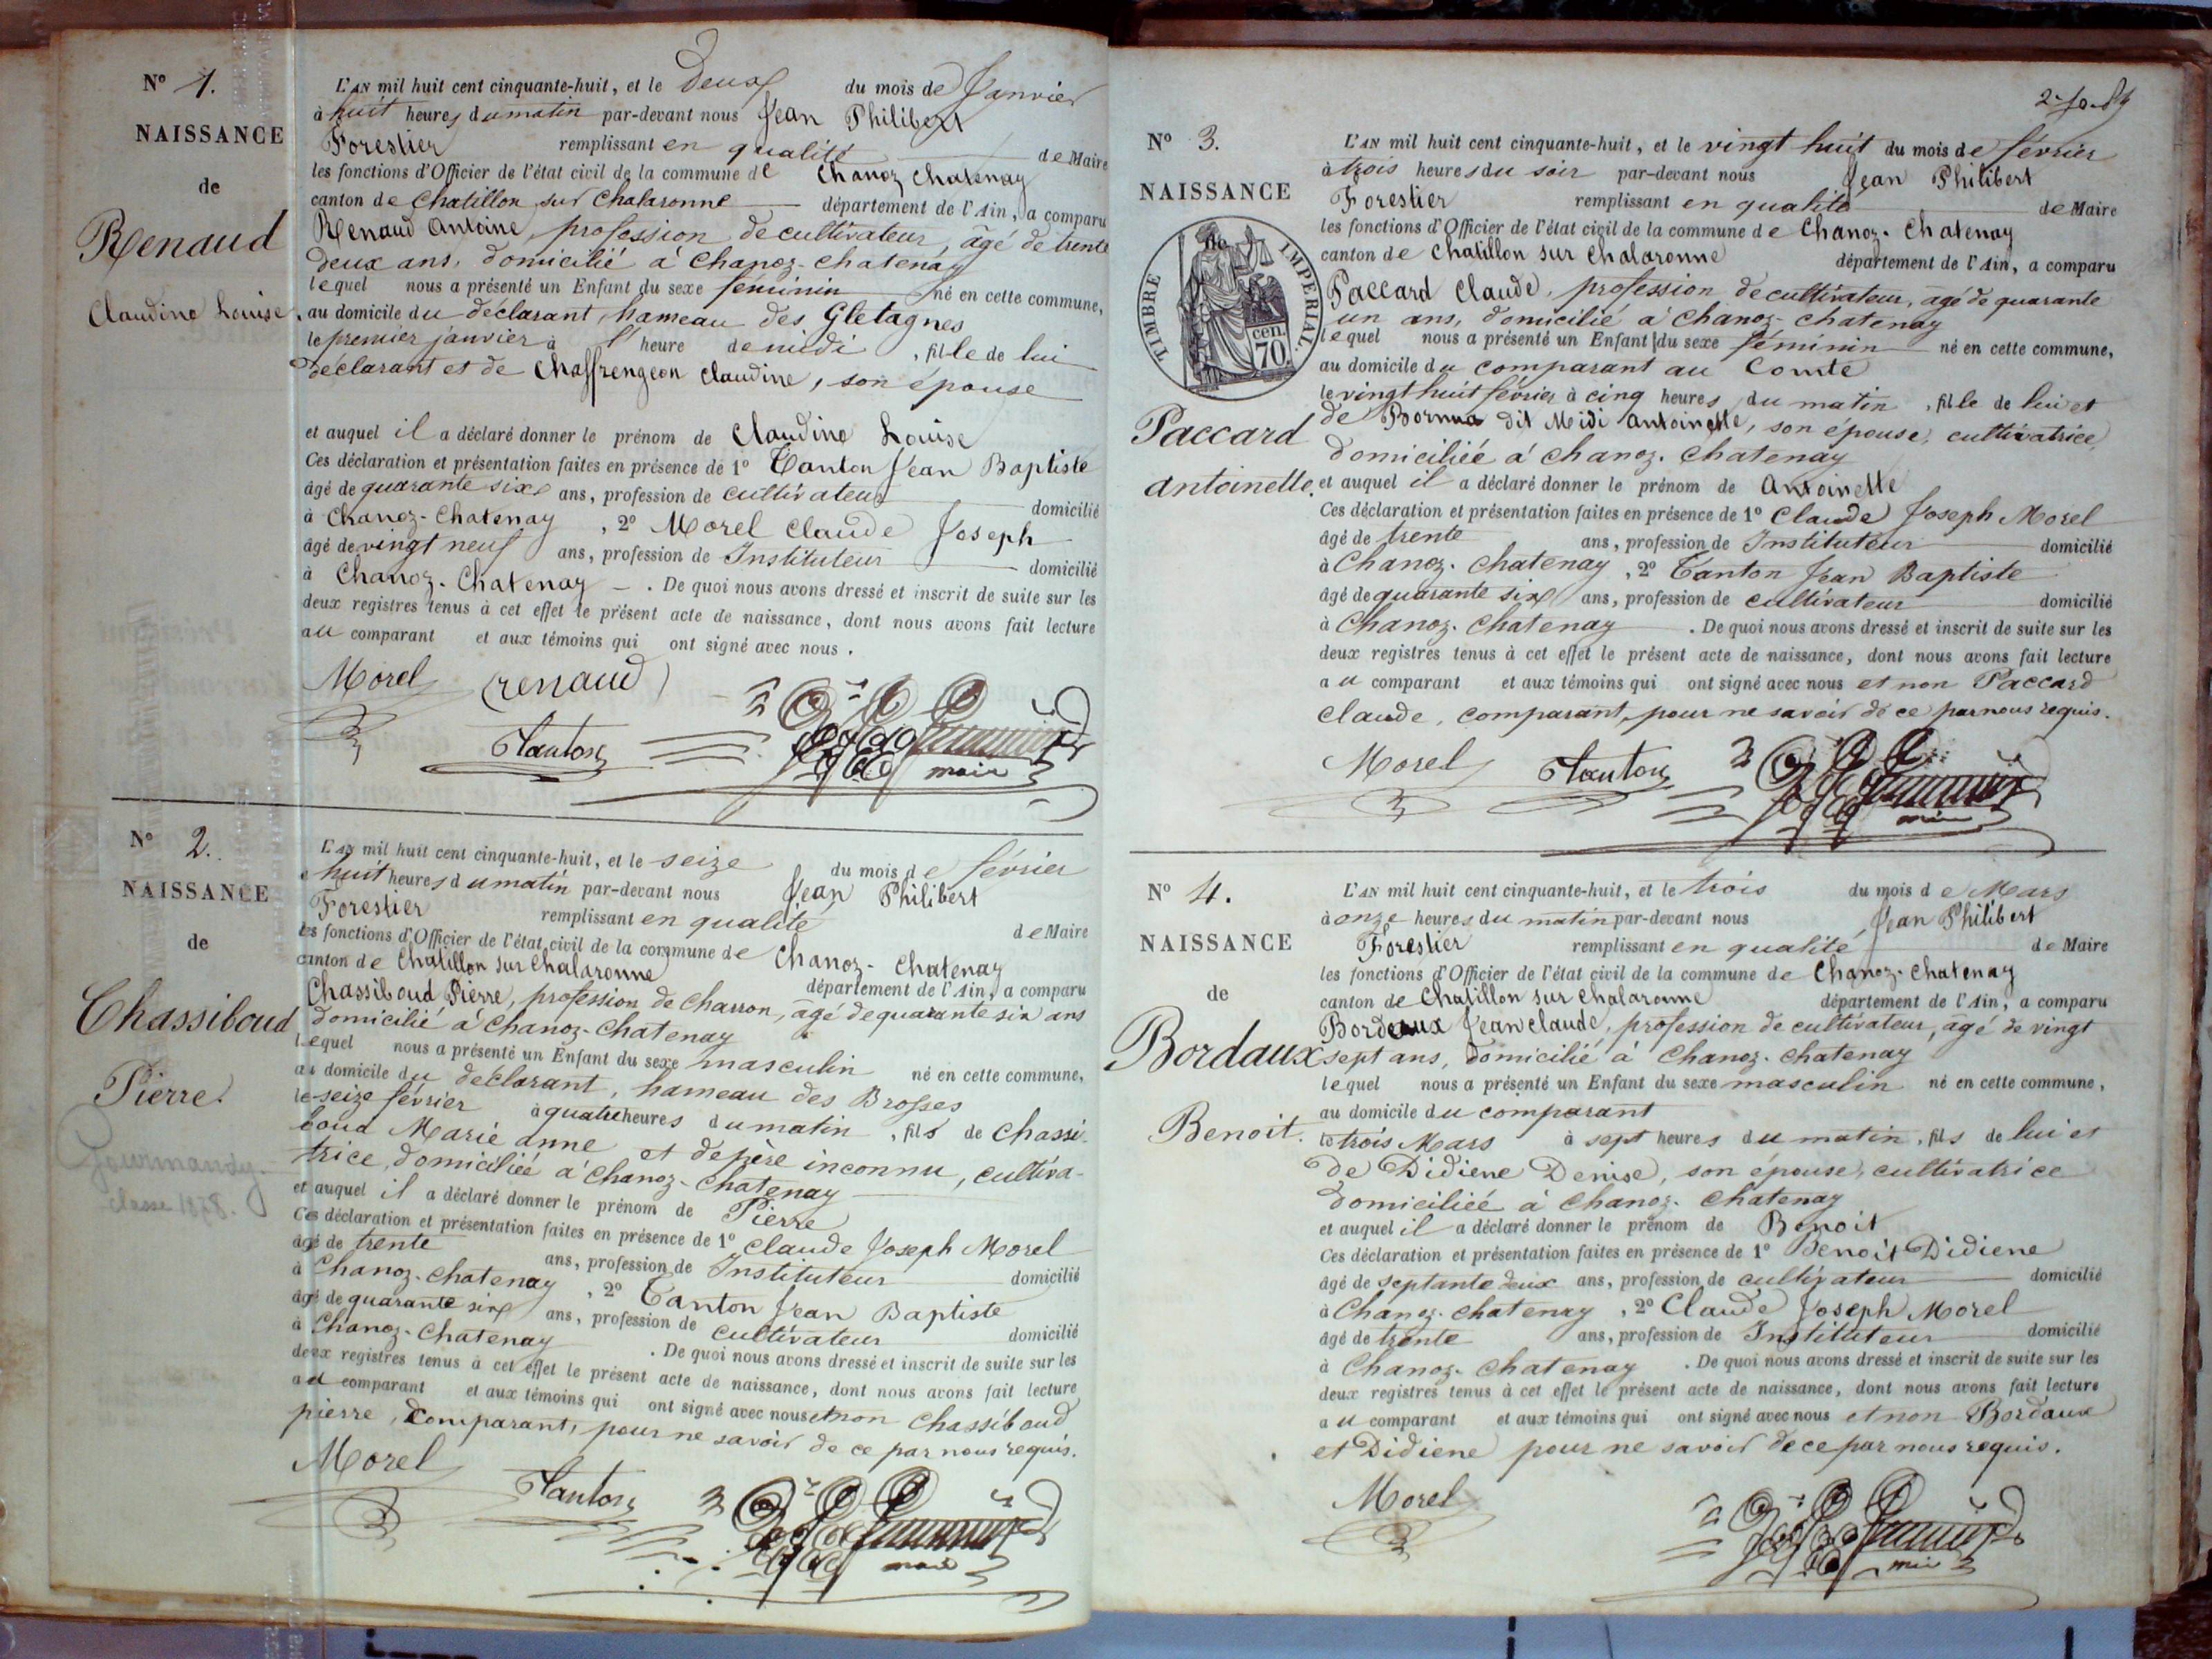 N° 1.
NAISSANCE
de
Renaud
Claudine Louise.
L'AN mil huit cent cinquante-huit, et le Deux du mois de Janvier
à huit heures du matin par-devant nous Jean Philibert
Forestier remplissant en qualité de Maire
les fonctions d'Officier de l'état civil de la commune de Chanoz Chatenay
canton de Chatillon sur Chalaronne département de l'Ain, a comparu
Renaud Antoine, profession de cultivateur, âgé de trente
deux ans, domicilié à Chanoz-Chatenay
lequel nous a présenté un Enfant du sexe féminin né en cette commune,
au domicile du déclarant, hameau des Gletagnes
le premier janvier à l' heure de midi, fille de lui
déclarant et de Chaffrengeon Claudine, son épouse
et auquel il a déclaré donner le prénom de Claudine Louise
Ces déclaration et présentation faites en présence de 1° Tanton Jean Baptiste
âgé de quarante six ans, profession de cultivateur domicilié
à Chanoz-Chatenay, 2° Morel Claude Joseph
âgé de vingt neuf ans, profession de Instituteur domicilié
à Chanoz-Chatenay. De quoi nous avons dressé et inscrit de suite sur les
deux registres tenus à cet effet le présent acte de naissance, dont nous avons fait lecture
au comparant et aux témoins qui ont signé avec nous.
Morel renaud
Tanton
maire
N° 2.
NAISSANCE
de
Chassiboud
Pierre.
classe 1878.
L'AN mil huit cent cinquante-huit, et le seize du mois de février
à huit heures du matin par-devant nous Jean Philibert
Forestier remplissant en qualité de Maire
les fonctions d'Officier de l'état civil de la commune de Chanoz-Chatenay
canton de Chatillon sur Chalaronne département de l'Ain, a comparu
Chassiboud Pierre, profession de Charron, âgé de quarante six ans
domicilié à Chanoz-Chatenay
lequel nous a présenté un Enfant du sexe masculin né en cette commune,
au domicile du déclarant, hameau des Brosses
le seize février à quatre heures du matin, fils de Chassi-
boud Marie anne et de père inconnu, cultiva-
trice, domiciliée à Chanoz-Chatenay
et auquel il a déclaré donner le prénom de Pierre
Ces déclaration et présentation faites en présence de 1° Claude Joseph Morel
âgé de trente ans, profession de Instituteur domicilié
à Chanoz-Chatenay, 2° Tanton Jean Baptiste
âgé de quarante six ans, profession de cultivateur domicilié
à Chanoz-Chatenay. De quoi nous avons dressé et inscrit de suite sur les
deux registres tenus à cet effet le présent acte de naissance, dont nous avons fait lecture
au comparant et aux témoins qui ont signé avec nous et non Chassiboud
pierre, comparant, pour ne savoir de ce par nous requis.
Morel
Tanton
maire
N° 3.
NAISSANCE
TIMBRE IMPÉRIAL.
cen.
70.
Paccard
Antoinette.
L'AN mil huit cent cinquante-huit, et le vingt huit du mois de février
à trois heures du soir par-devant nous Jean Philibert
Forestier remplissant en qualité de Maire
les fonctions d'Officier de l'état civil de la commune de Chanoz-Chatenay
canton de Chatillon sur Chalaronne département de l'Ain, a comparu
Paccard Claude, profession de cultivateur, âgé de quarante
un ans, domicilié à Chanoz-Chatenay
lequel nous a présenté un Enfant du sexe féminin né en cette commune,
au domicile du comparant au Comte
le vingt huit février à cinq heures du matin, fille de lui et
de dit Midi Antoinette, son épouse, cultivatrice,
domiciliée à Chanoz-Chatenay
et auquel il a déclaré donner le prénom de Antoinette
Ces déclaration et présentation faites en présence de 1° Claude Joseph Morel
âgé de trente ans, profession de Instituteur domicilié
à Chanoz-Chatenay, 2° Tanton Jean Baptiste
âgé de quarante six ans, profession de cultivateur domicilié
à Chanoz-Chatenay. De quoi nous avons dressé et inscrit de suite sur les
deux registres tenus à cet effet le présent acte de naissance, dont nous avons fait lecture
au comparant et aux témoins qui ont signé avec nous et non Paccard
Claude, comparant, pour ne savoir de ce par nous requis.
Morel Tanton
maire
N° 4.
NAISSANCE
de
Bordaux
Benoit.
L'AN mil huit cent cinquante-huit, et le trois du mois de Mars
à onze heures du matin par-devant nous Jean Philibert
Forestier remplissant en qualité de Maire
les fonctions d'Officier de l'état civil de la commune de Chanoz-Chatenay
canton de Chatillon sur Chalaronne département de l'Ain, a comparu
Bordeaux Jean Claude, profession de cultivateur, âgé de vingt
sept ans, domicilié à Chanoz-Chatenay
lequel nous a présenté un Enfant du sexe masculin né en cette commune,
au domicile du comparant
le trois Mars à sept heures du matin, fils de lui et
de Didiene Denise, son épouse, cultivatrice
domiciliée à Chanoz-Chatenay
et auquel il a déclaré donner le prénom de Benoit
Ces déclaration et présentation faites en présence de 1° Benoit Didiene
âgé de septante deux ans, profession de cultivateur domicilié
à Chanoz-Chatenay, 2° Claude Joseph Morel
âgé de trente ans, profession de Instituteur domicilié
à Chanoz-Chatenay. De quoi nous avons dressé et inscrit de suite sur les
deux registres tenus à cet effet le présent acte de naissance, dont nous avons fait lecture
au comparant et aux témoins qui ont signé avec nous et non Bordaux
et Didiene pour ne savoir de ce par nous requis.
Morel